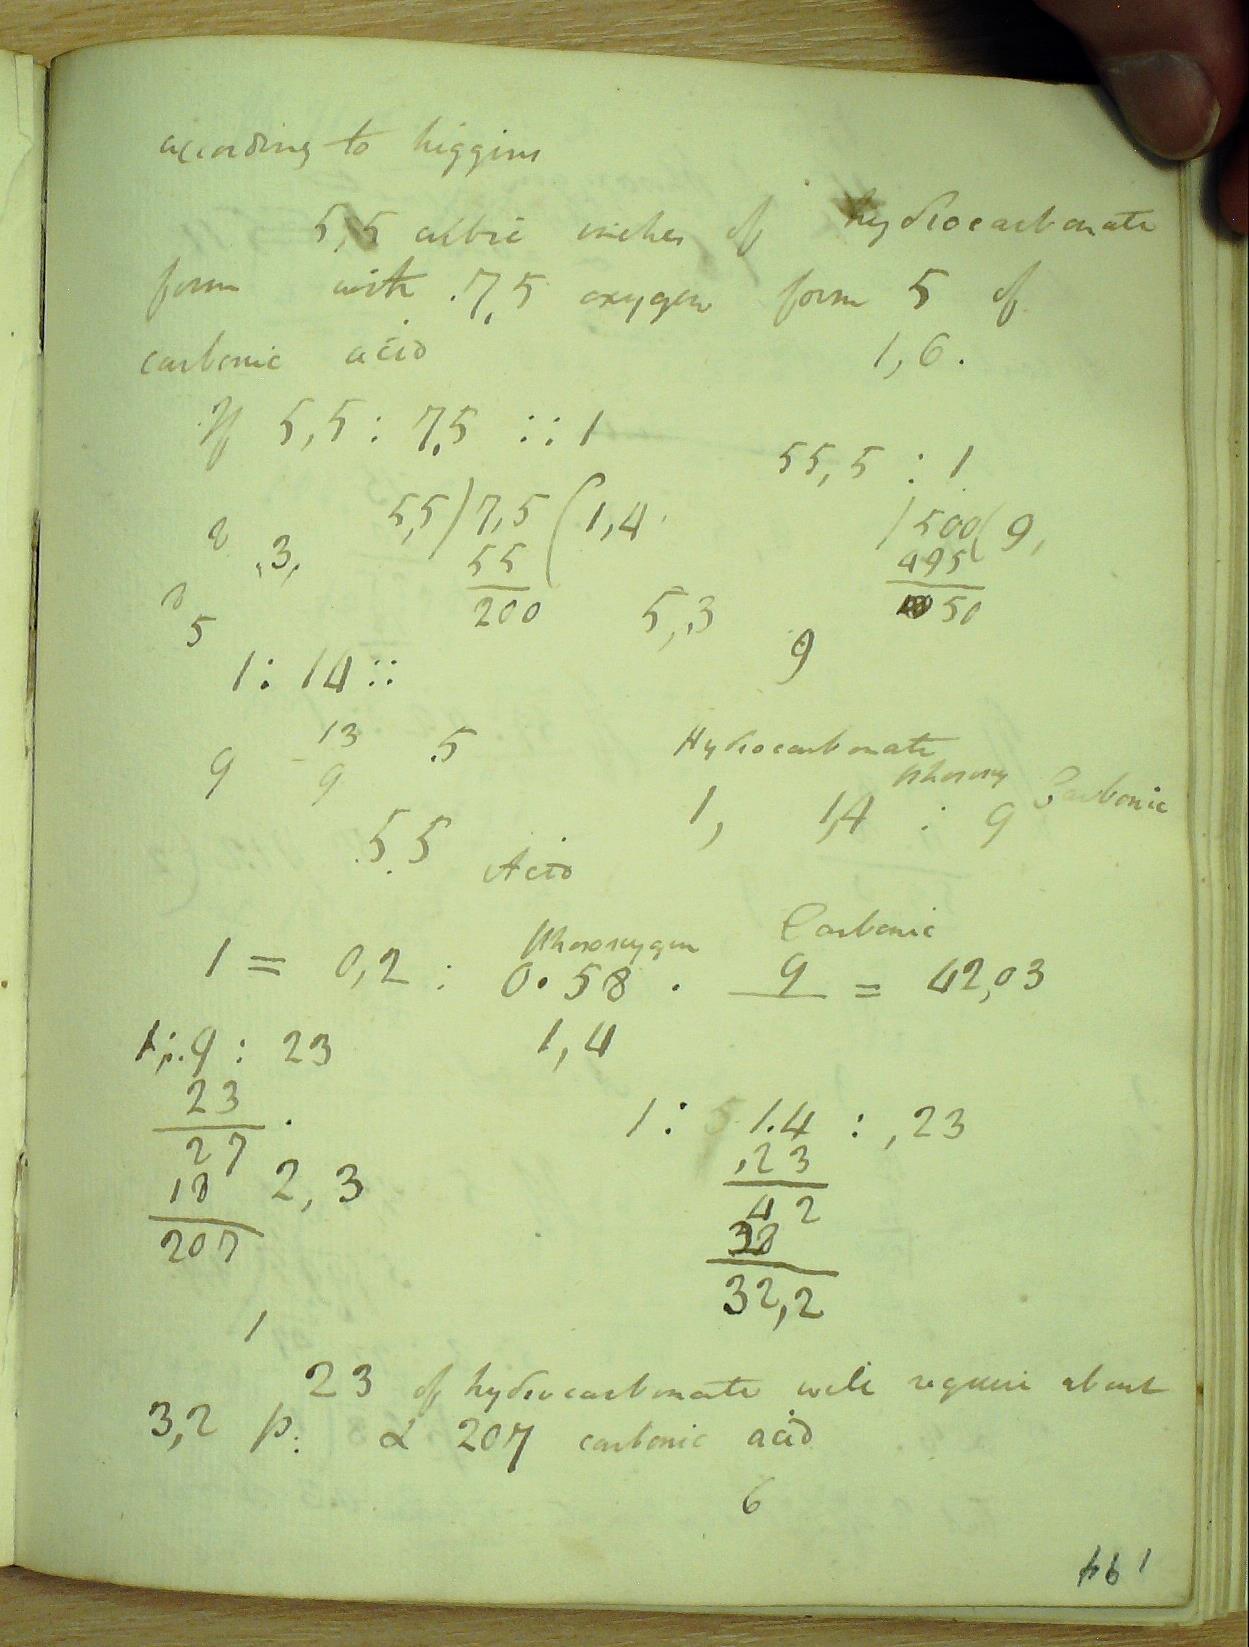 according to higgins
5,5 cubic inches of hydrocarbonate
form with .7,5 oxygen form 5 of
carbonic acid 1,6.
If 5,5 : 7,5 :: 1
55,5 : 1
5,5) 7,5 (1,4
55
200
) 500 ( 9,
495
50
8 .3,
5,3
9
5
1 : 14 ::
9 13 .5
9
Hydrocarbonate
Phosoxy Carbonic
1, 1,4 : 9
5.5 Acid
Phosoxygen Carbonic
1 = 0,2 : 0.58 . 9 = 42,03
1,4
1 ; .9 : 23
23
27
18 2,3
207
1 : 1.4 : ,23
,23
42
28
32,2
1
23 of hydrocarbonate will require about
3,2 p: & 207 carbonic acid
6